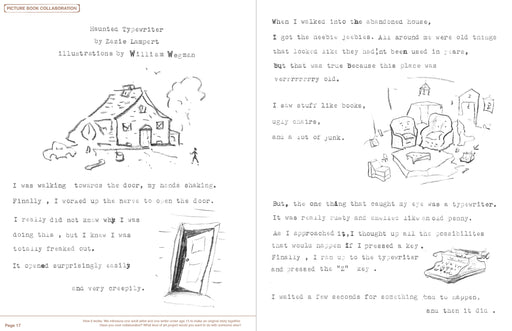 PICTURE BOOK COLLABORATION
Haunted Typewriter
by Zazie Lampert
illustrations by William Wegman
I was walking towards the door, my hands shaking.
Finally , I worked up the nerve to open the door.
I really did not know why I was
doing this , but I knew I was
totally freaked out.
It opened surprisingly easily
and very creepily.
Page 17
When I walked into the abandoned house,
I got the heebie jeebies. All around me were old things
that looked like they hadn't been used in years,
but that was true because this place was
verrrrrrrry old.
I saw stuff like books,
ugly chairs,
and a lot of junk.
But, the one thing that caught my eye was a typewriter.
It was really rusty and smelled like an old penny.
As I approached it, I thought up all the possibilities
that would happen if I pressed a key .
Finally , I ran up to the typewriter
and pressed the "Z" key .
I waited a few seconds for something bad to happen,
and then it did .